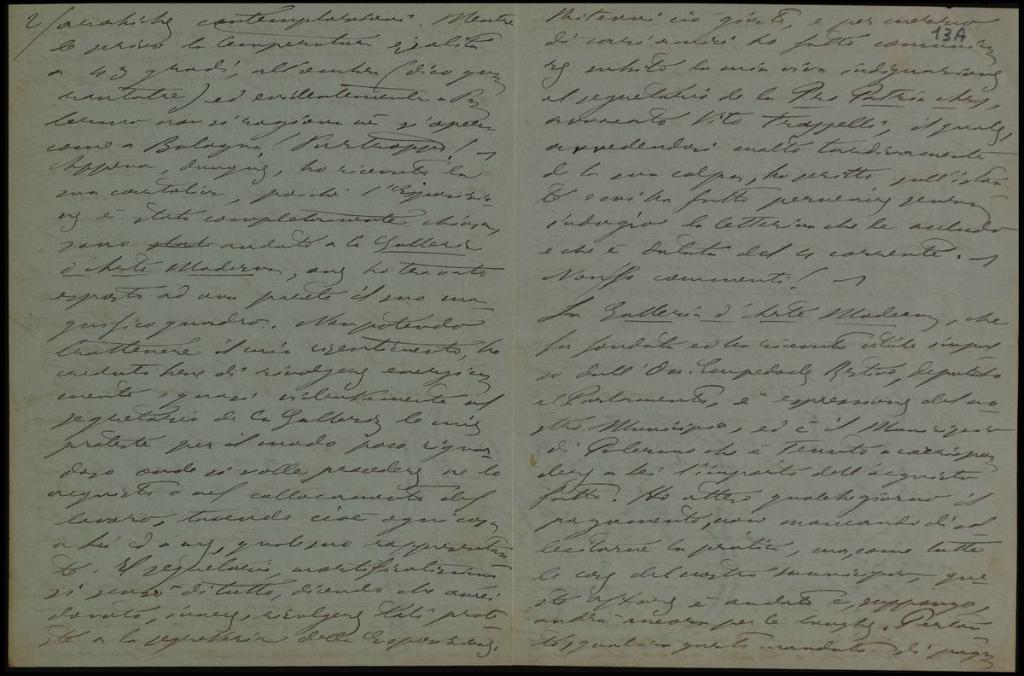 2/ arabiche contemplazioni. Mentre
le scrivo la temperatura è salita
a 43 gradi, all'ombra (dico qua
rantatre) ed evidentemente a Pa
lermo non si ragiona nè si opera
come a Bologna! Purtroppo!
Appena, dunque, ho ricevuto la
sua cartolina, poichè l'Esposizio
ne è stata completamente chiusa,
sono andato a la Galleria
d'Arte Moderna, ove ho trovato
esposto ad una parete il suo ma
gnifico quadro. Non potendo
trattenere il mio risentimento, ho
creduto bene di rivolgere energica
mente e quasi violentemente al
segretario de la Galleria le mie
proteste per il modo poco riguar
doso onde si volle procedere ne lo
acquisto e nel collocamento del
lavoro, tacendo cioè ogni cosa
a Lei ed a me, quale suo rappresentan
te. Il segretario, mortificatissimo
si scusò di tutto, dicendo che avrei
dovuto, invece, rivolgere tali prote
ste a la segreteria della Esposizione.
Ritenni ciò giusto, e per mezzo
13A
di ho fatto comunica
re subito la mia viva indignazione
al segretario de la Pro Patria
avvocato Vito Trapelli, il quale,
avvedendosi molto tardivamente
de la sua colpa, ha scritto sull'istan
te e mi ha fatto pervenire senza
indugio la letterina che le accludo
e che è datata del 4 corrente.
Non fo commenti!
La Galleria d'Arte Moderna, che
fu fondata ed ha ricevuto impul
so dall'On. Empedocle Restivo, deputato
al Parlamento, è espressione del no
stro Municipio, ed è il Municipio
di Palermo che è tenuto a corrispon
dere a Lei l'importo dell'acquisto
fatto. Ho atteso qualche giorno il
pagamento, non mancando di sol
lecitarne la pratica, ma, come tutte
le cose del nostro municipio, que
sto affare è andato e, suppongo,
andrà ancora per le lunghe. Pertan
to, qualora questo mandato di paga